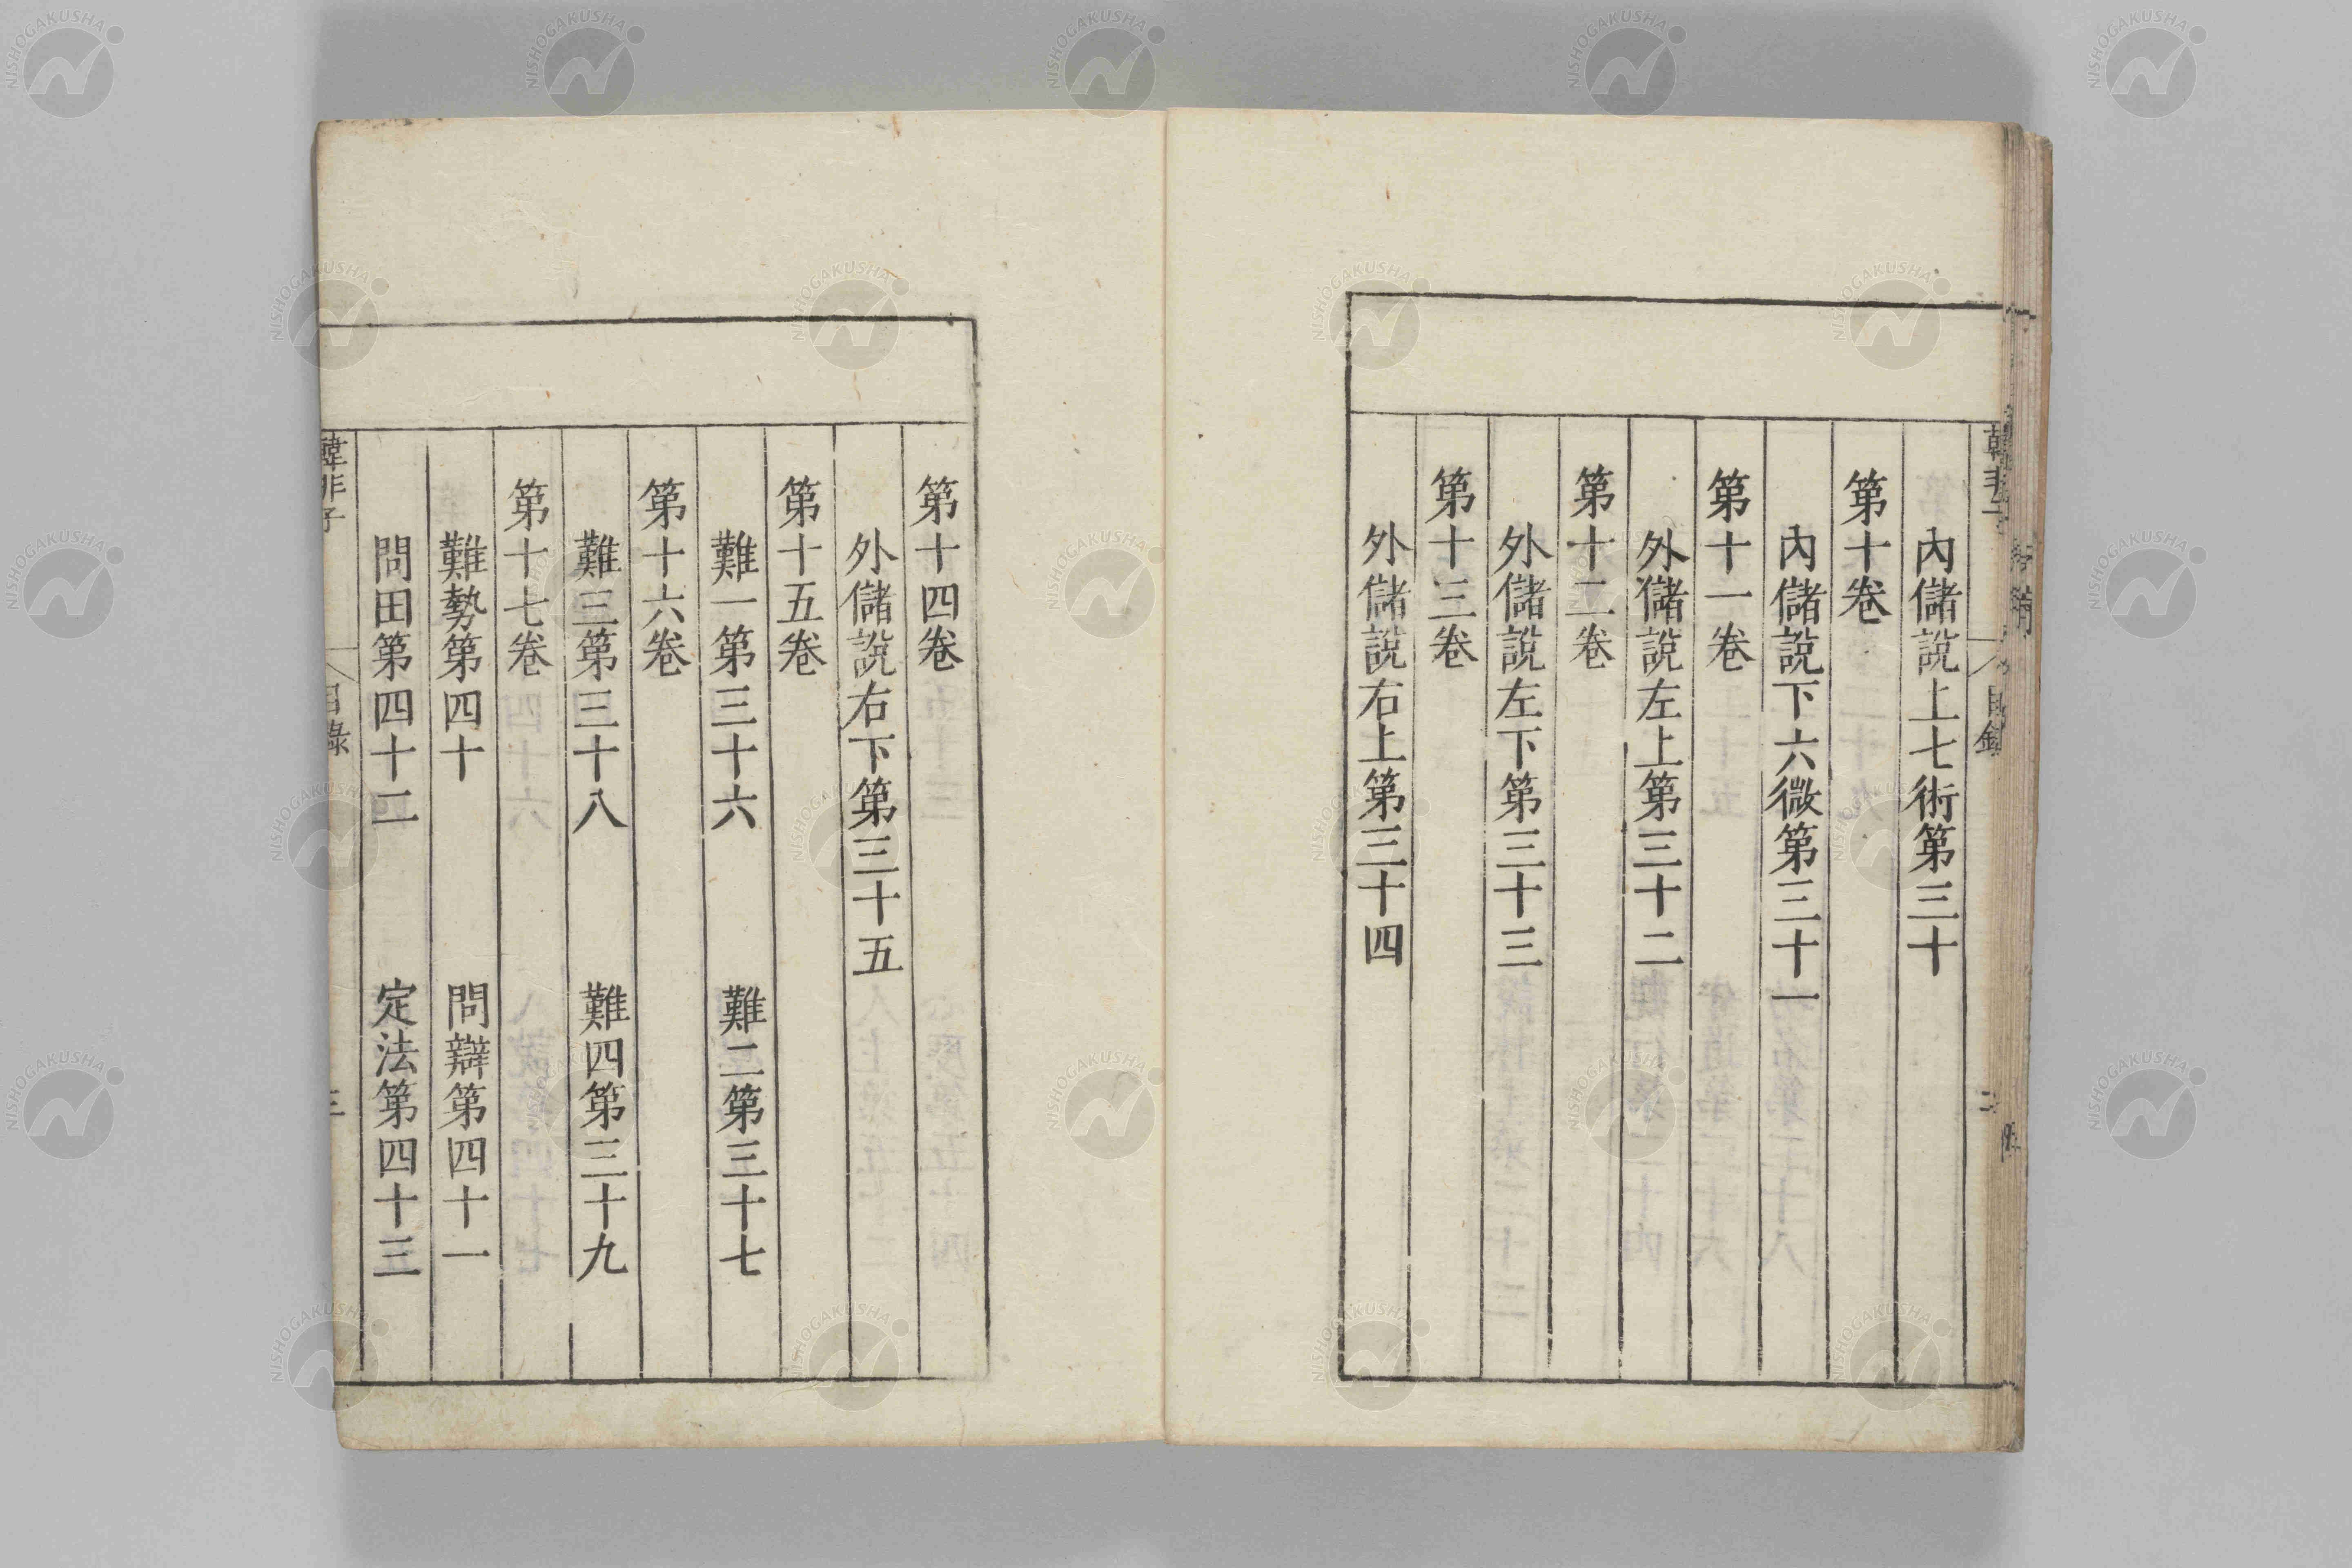 韓非子
目錄
二
內儲說上七術第三十
第十卷
內儲說下六微第三十一
第十一卷
外儲說左上第三十二
第十二卷
外儲說左下第三十三
第十三卷
外儲說右上第三十四
第十四卷
外儲說右下第三十五
第十五卷
難一第三十六 難二第三十七
第十六卷
難三第三十八 難四第三十九
第十七卷
難勢第四十 問辯第四十一
問田第四十二 定法第四十三
韓非子
目錄
三
NISHOGAKUSHA